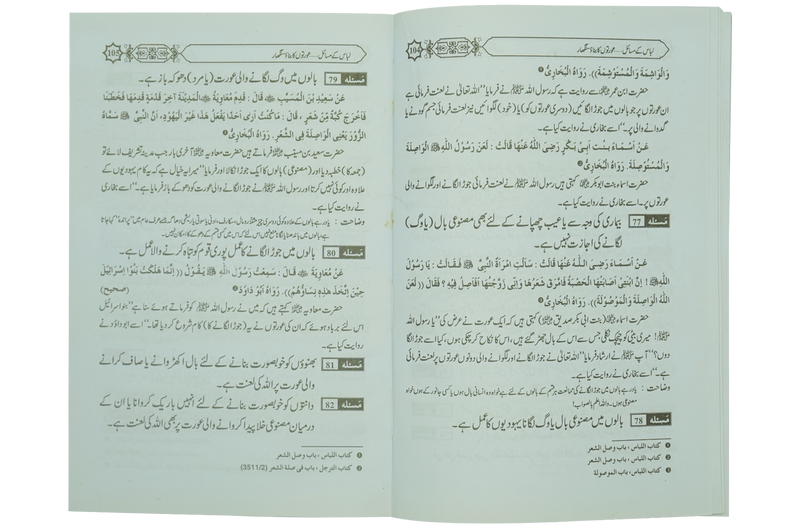 104
لباس کے مسائل....عورتوں کا بناؤ سنگھار
وَالْوَاشِمَةَ وَالْمُسْتَوْشِمَةَ)). رَوَاهُ الْبُخَارِیُّ
حضرت ابن عمر سے روایت ہے کہ رسول اللہ ﷺ نے فرمایا ”اللہ تعالیٰ نے لعنت فرمائی ہے
ان عورتوں پر جو بالوں میں جوڑ لگائیں (دوسری عورتوں کو) یا (خود) لگوائیں نیز لعنت فرمائی جسم گودنے یا
گدوانے والی پر۔“ اسے بخاری نے روایت کیا ہے۔
عَنْ اَسْمَاءَ بِنْتِ اَبِیْ بَکْرٍ رَضِیَ اللّٰهُ عَنْهَا قَالَتْ : لَعَنَ رَسُوْلُ اللّٰهِ ﷺ الْوَاصِلَةَ
وَالْمُسْتَوْصِلَةَ. رَوَاهُ الْبُخَارِیُّ
حضرت اسماء بنت ابوبکر کہتی ہیں رسول اللہ ﷺ نے لعنت فرمائی ہے جوڑ لگانے اور لگوانے والی
عورتوں پر۔ اسے بخاری نے روایت کیا ہے۔
مسئلہ 77 بیماری کی وجہ سے یا عیب چھپانے کے لئے بھی مصنوعی بال (یا وگ)
لگانے کی اجازت نہیں ہے۔
عَنْ اَسْمَاءَ رَضِیَ اللّٰهُ عَنْهَا قَالَتْ : سَاَلَتِ امْرَاَةٌ النَّبِیَّ ﷺ فَقَالَتْ : یَا رَسُوْلَ
اللّٰهِ ﷺ ! اِنَّ ابْنَتِیْ اَصَابَتْهَا الْحَصْبَةُ فَامَّرَقَ شَعْرُهَا وَاِنِّیْ زَوَّجْتُهَا اَفَاَصِلُ فِیْهِ ؟ فَقَالَ ((لَعَنَ
اللّٰهُ الْوَاصِلَةَ وَالْمَوْصُوْلَةَ)). رَوَاهُ الْبُخَارِیُّ
حضرت اسماء (بنت ابی بکر صدیق) کہتی ہیں کہ ایک عورت نے عرض کی ”یا رسول اللہ
ﷺ! میری بیٹی کو چیچک نکلی جس سے اس کے بال جھڑ گئے ہیں، اس کا نکاح کر چکی ہوں، کیا اسے جوڑ لگا
دوں؟“ آپ ﷺ نے ارشاد فرمایا ”اللہ تعالیٰ نے جوڑ لگانے اور لگوانے والی دونوں عورتوں پر لعنت فرمائی
ہے۔“ اسے بخاری نے روایت کیا ہے۔
وضاحت : یاد رہے بالوں میں جوڑ لگانے کی ممانعت ہر قسم کے بالوں کے لئے ہے خواہ وہ انسانی بال ہوں یا کسی جانور کے ہوں خواہ
مصنوعی ہوں۔ واللہ اعلم بالصواب!
مسئلہ 78 بالوں میں مصنوعی بال یا وگ لگانا یہودیوں کا عمل ہے۔
کتاب اللباس ، باب وصل الشعر
کتاب اللباس ، باب وصل الشعر
کتاب اللباس، باب الموصولة
105
لباس کے مسائل....عورتوں کا بناؤ سنگھار
مسئلہ 79 بالوں میں وگ لگانے والی عورت (یا مرد) دھوکہ باز ہے۔
عَنْ سَعِیْدِ بْنِ الْمُسَیَّبِ قَالَ : قَدِمَ مُعَاوِیَةُ الْمَدِیْنَةَ آخِرَ قَدْمَةٍ قَدِمَهَا فَخَطَبَنَا
فَاَخْرَجَ کُبَّةً مِنْ شَعَرٍ ، قَالَ : مَا کُنْتُ اَرٰی اَحَدًا یَفْعَلُ هٰذَا غَیْرَ الْیَهُوْدِ، اَنَّ النَّبِیَّ ﷺ سَمَّاهُ
الزُّوْرَ یَعْنِی الْوَاصِلَةَ فِی الشَّعْرِ. رَوَاهُ الْبُخَارِیُّ
حضرت سعید بن مسیب فرماتے ہیں حضرت معاویہ آخری بار جب مدینہ تشریف لائے تو
(جمعہ کا) خطبہ دیا اور (مصنوعی) بالوں کا ایک جوڑا نکالا اور فرمایا ”میرا یہ خیال ہے کہ یہ کام یہودیوں کے
علاوہ اور کوئی نہیں کرتا اور رسول اللہ ﷺ نے جوڑ لگانے والی عورت کو دھوکے باز فرمایا ہے۔“ اسے بخاری
نے روایت کیا ہے۔
مسئلہ 80 بالوں میں جوڑ لگانے کا عمل پوری قوم کو تباہ کرنے والا عمل ہے۔
عَنْ مُعَاوِیَةَ قَالَ : سَمِعْتُ رَسُوْلَ اللّٰهِ ﷺ یَقُوْلُ ((اِنَّمَا هَلَکَتْ بَنُوْا اِسْرَائِیْلَ
حِیْنَ اتَّخَذَ هٰذِهِ نِسَاؤُهُمْ)). رَوَاهُ اَبُوْ دَاوٗدَ (صحیح)
حضرت معاویہ کہتے ہیں کہ میں نے رسول اللہ ﷺ کو فرماتے ہوئے سنا ہے ”بنو اسرائیل
اس لئے برباد ہوئے کہ ان کی عورتوں نے یہ (جوڑ لگانے کا) کام شروع کر دیا تھا۔“ اسے ابو داؤد نے
روایت کیا ہے۔
مسئلہ 81 بھنوؤں کو خوبصورت بنانے کے لئے بال اکھڑوانے یا صاف کرانے
والی عورت پر اللہ کی لعنت ہے۔
مسئلہ 82 دانتوں کو خوبصورت بنانے کے لئے انہیں باریک کروانا یا ان کے
درمیان مصنوعی خلا پیدا کروانے والی عورت پر بھی اللہ کی لعنت ہے۔
کتاب اللباس ، باب وصل الشعر
کتاب الترجل ، باب فی صلة الشعر (3511/2)